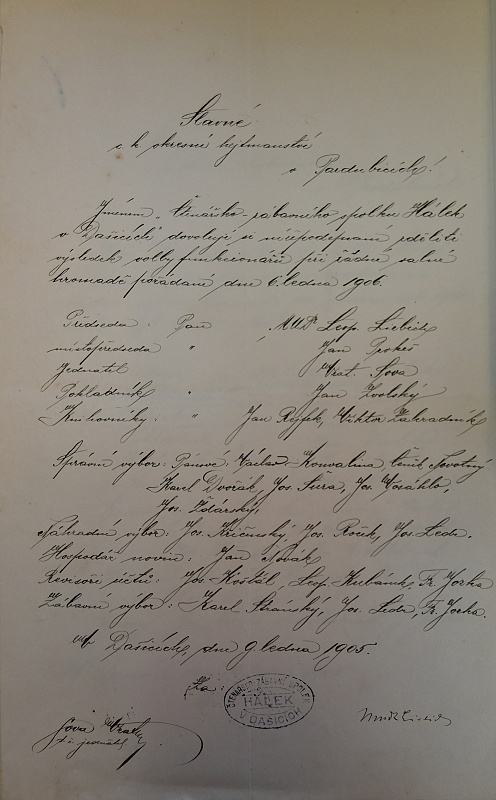 Slavné
c. k. okresní hejtmanství
v Pardubicích!
Jménem „Čtenářsko-zábavného spolku Hálek
v Dašicích" dovolují si níže podepsaní sděliti
výsledek volby funkcionářů při řádné valné
hromadě pořádané dne 6. ledna 1906.
Předseda: Pan MUDr Leop. Liebich
místopředseda " Jan Prokeš
Jednatel Vrat. Sova
Pokladník " Jan Zvolský
Knihovníky: " Jan Ryšek, Viktor Zahradník
Správní výbor: Pánové: Václav Konvalina, Cyril Novotný
Karel Dvořák, Jos. Fiera, Jos.
Jos. Žďárský,
Náhradní výbor: Jos. Křičenský, Jos. Ročík, Jos. Ledr.
Hospodář novin: Jan Novák
Revisoři účtů: Jos. Košťál, Leop. Kubánk, Fr. Jorka
Zábavní výbor: Karel Stránský, Jos. Ledr, Fr. Jorka.
V Dašicích, dne 9. ledna 1905.
Za:
ČTENÁŘSKO-ZÁBAVNÝ SPOLEK
HÁLEK
V DAŠICÍCH
Sova Vrat.
t. č. jednatel